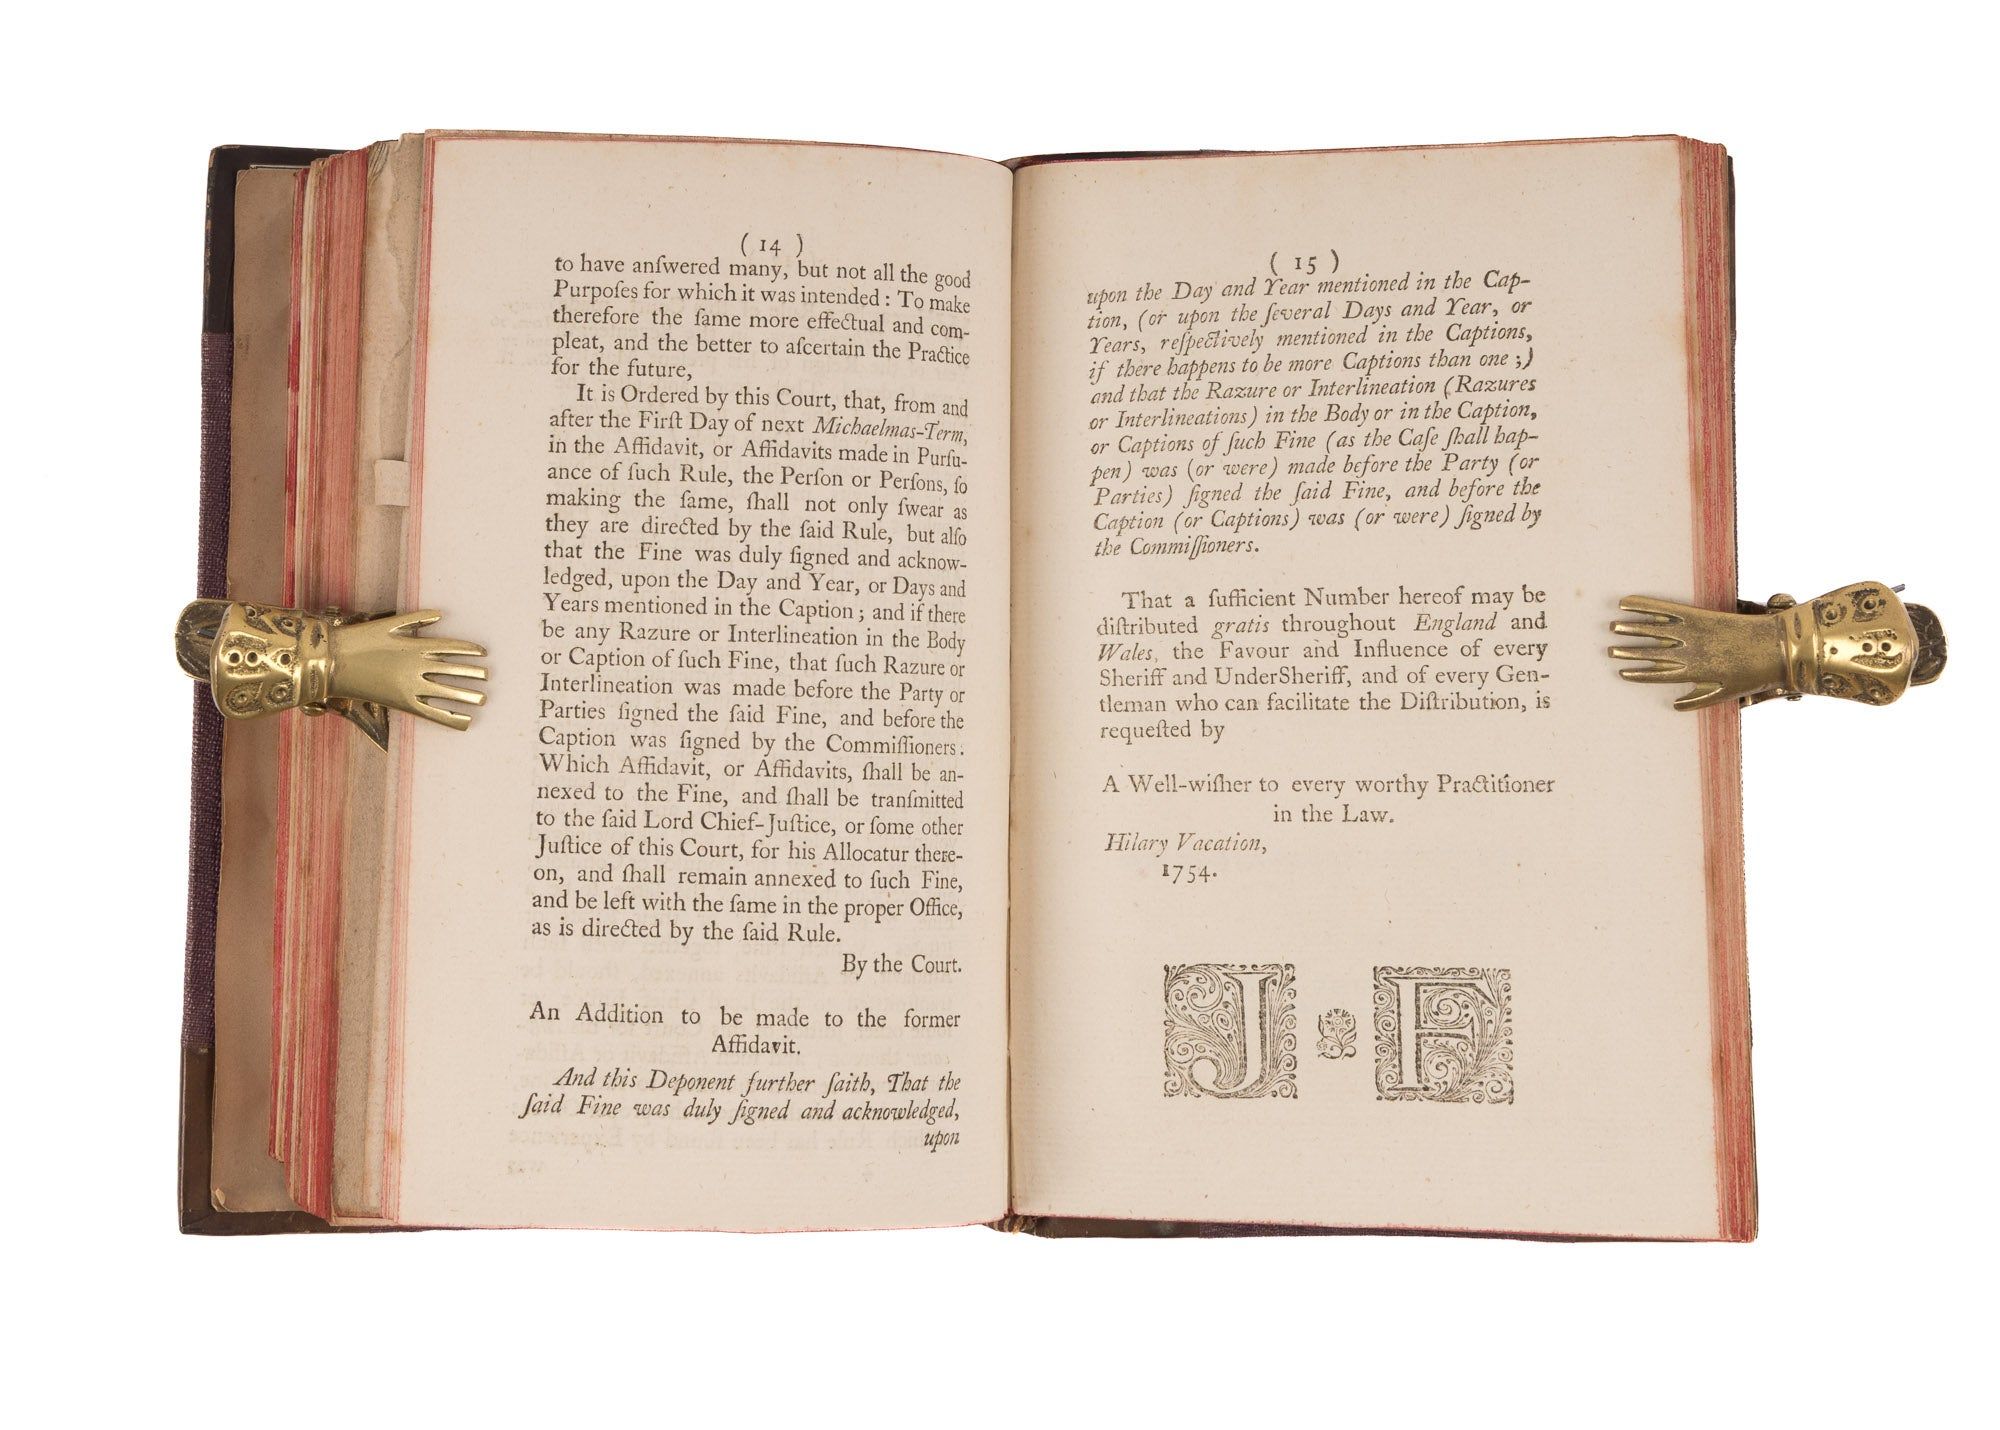 ( 14 )
to have anſwered many, but not all the good
Purpoſes for which it was intended : To make
therefore the ſame more effectual and com-
pleat, and the better to aſcertain the Practice
for the future,
It is Ordered by this Court, that, from and
after the Firſt Day of next Michaelmas-Term,
in the Affidavit, or Affidavits made in Purſu-
ance of ſuch Rule, the Perſon or Perſons, ſo
making the ſame, ſhall not only ſwear as
they are directed by the ſaid Rule, but alſo
that the Fine was duly ſigned and acknow-
ledged, upon the Day and Year, or Days and
Years mentioned in the Caption ; and if there
be any Razure or Interlineation in the Body
or Caption of ſuch Fine, that ſuch Razure or
Interlineation was made before the Party or
Parties ſigned the ſaid Fine, and before the
Caption was ſigned by the Commiſſioners.
Which Affidavit, or Affidavits, ſhall be an-
nexed to the Fine, and ſhall be tranſmitted
to the ſaid Lord Chief-Juſtice, or ſome other
Juſtice of this Court, for his Allocatur there-
on, and ſhall remain annexed to ſuch Fine,
and be left with the ſame in the proper Office,
as is directed by the ſaid Rule.
By the Court.
An Addition to be made to the former
Affidavit.
And this Deponent further ſaith, That the
ſaid Fine was duly ſigned and acknowledged,
upon
( 15 )
upon the Day and Year mentioned in the Cap-
tion, (or upon the ſeveral Days and Year, or
Years, reſpectively mentioned in the Captions,
if there happens to be more Captions than one ;)
and that the Razure or Interlineation (Razures
or Interlineations) in the Body or in the Caption,
or Captions of ſuch Fine (as the Caſe ſhall hap-
pen) was (or were) made before the Party (or
Parties) ſigned the ſaid Fine, and before the
Caption (or Captions) was (or were) ſigned by
the Commiſſioners.
That a ſufficient Number hereof may be
diſtributed gratis throughout England and
Wales, the Favour and Influence of every
Sheriff and UnderSheriff, and of every Gen-
tleman who can facilitate the Diſtribution, is
requeſted by
A Well-wiſher to every worthy Practitioner
in the Law.
Hilary Vacation,
1754.
J F